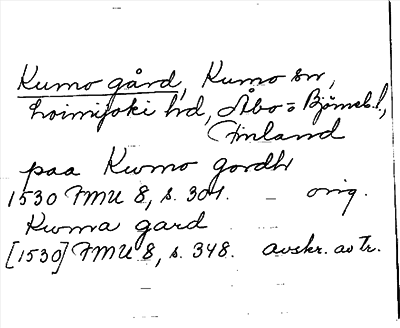 Kumo gård, Kumo sn,
Loimijoki hd, Åbo = Björneb. l.,
Finland
paa Kwmo gordh
1530 FMU 8, s. 301. orig.
Kwma gard
[1530] FMU 8, s. 348. avskr. av Tr.